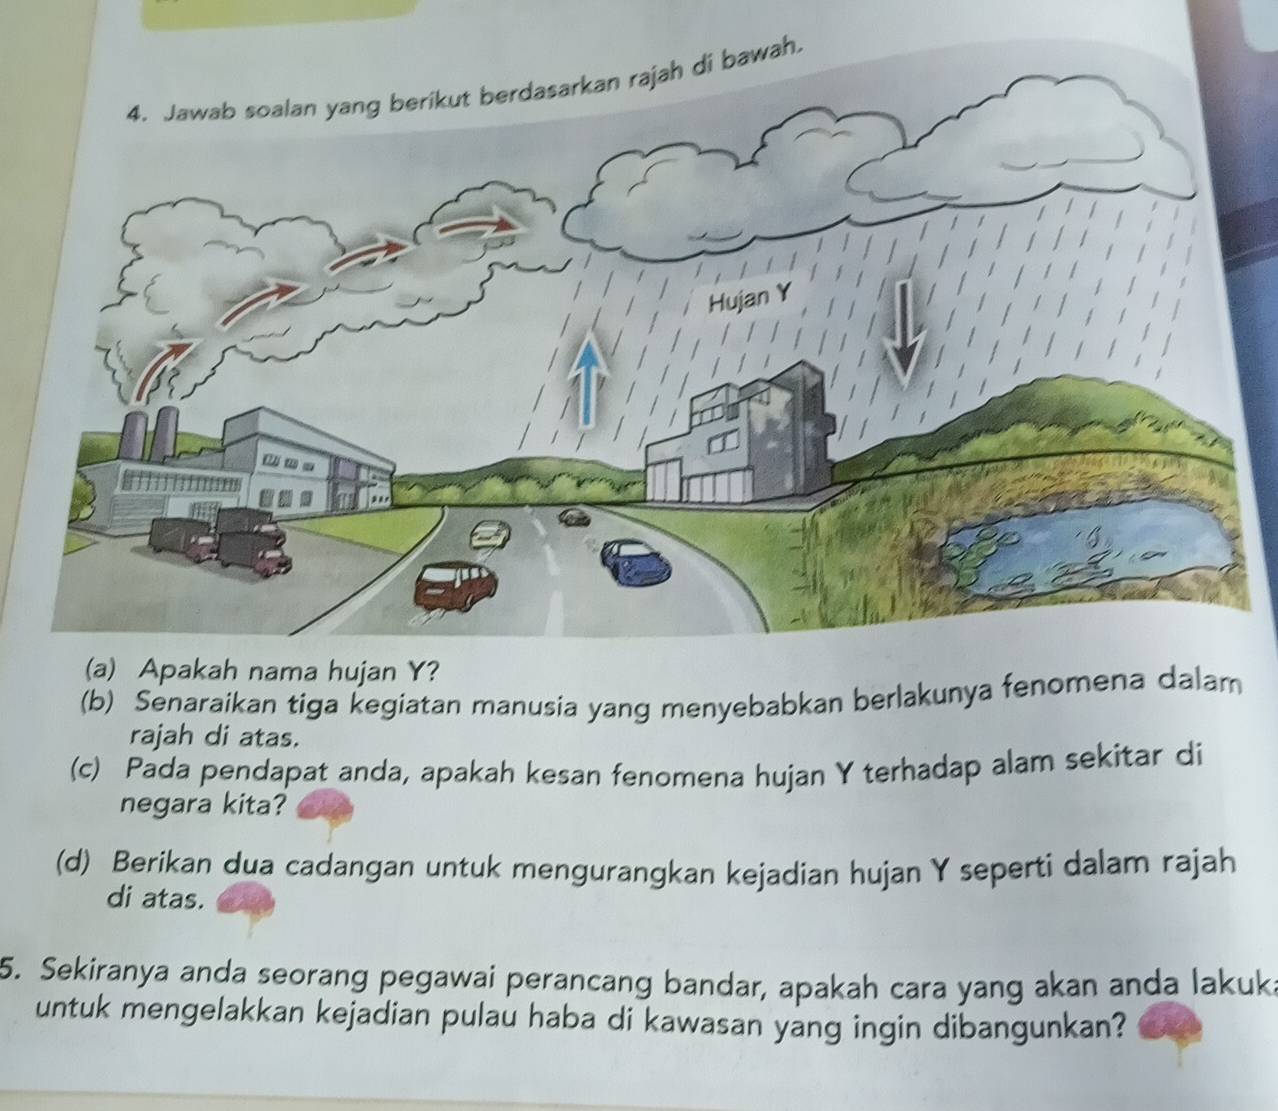 4. Jawab soalan yang berikut berdasarkan rajah di bawah.
Hujan Y
(a) Apakah nama hujan Y?
(b) Senaraikan tiga kegiatan manusia yang menyebabkan berlakunya fenomena dalam
rajah di atas.
(c) Pada pendapat anda, apakah kesan fenomena hujan Y terhadap alam sekitar di
negara kita?
(d) Berikan dua cadangan untuk mengurangkan kejadian hujan Y seperti dalam rajah
di atas.
5. Sekiranya anda seorang pegawai perancang bandar, apakah cara yang akan anda lakuka
untuk mengelakkan kejadian pulau haba di kawasan yang ingin dibangunkan?